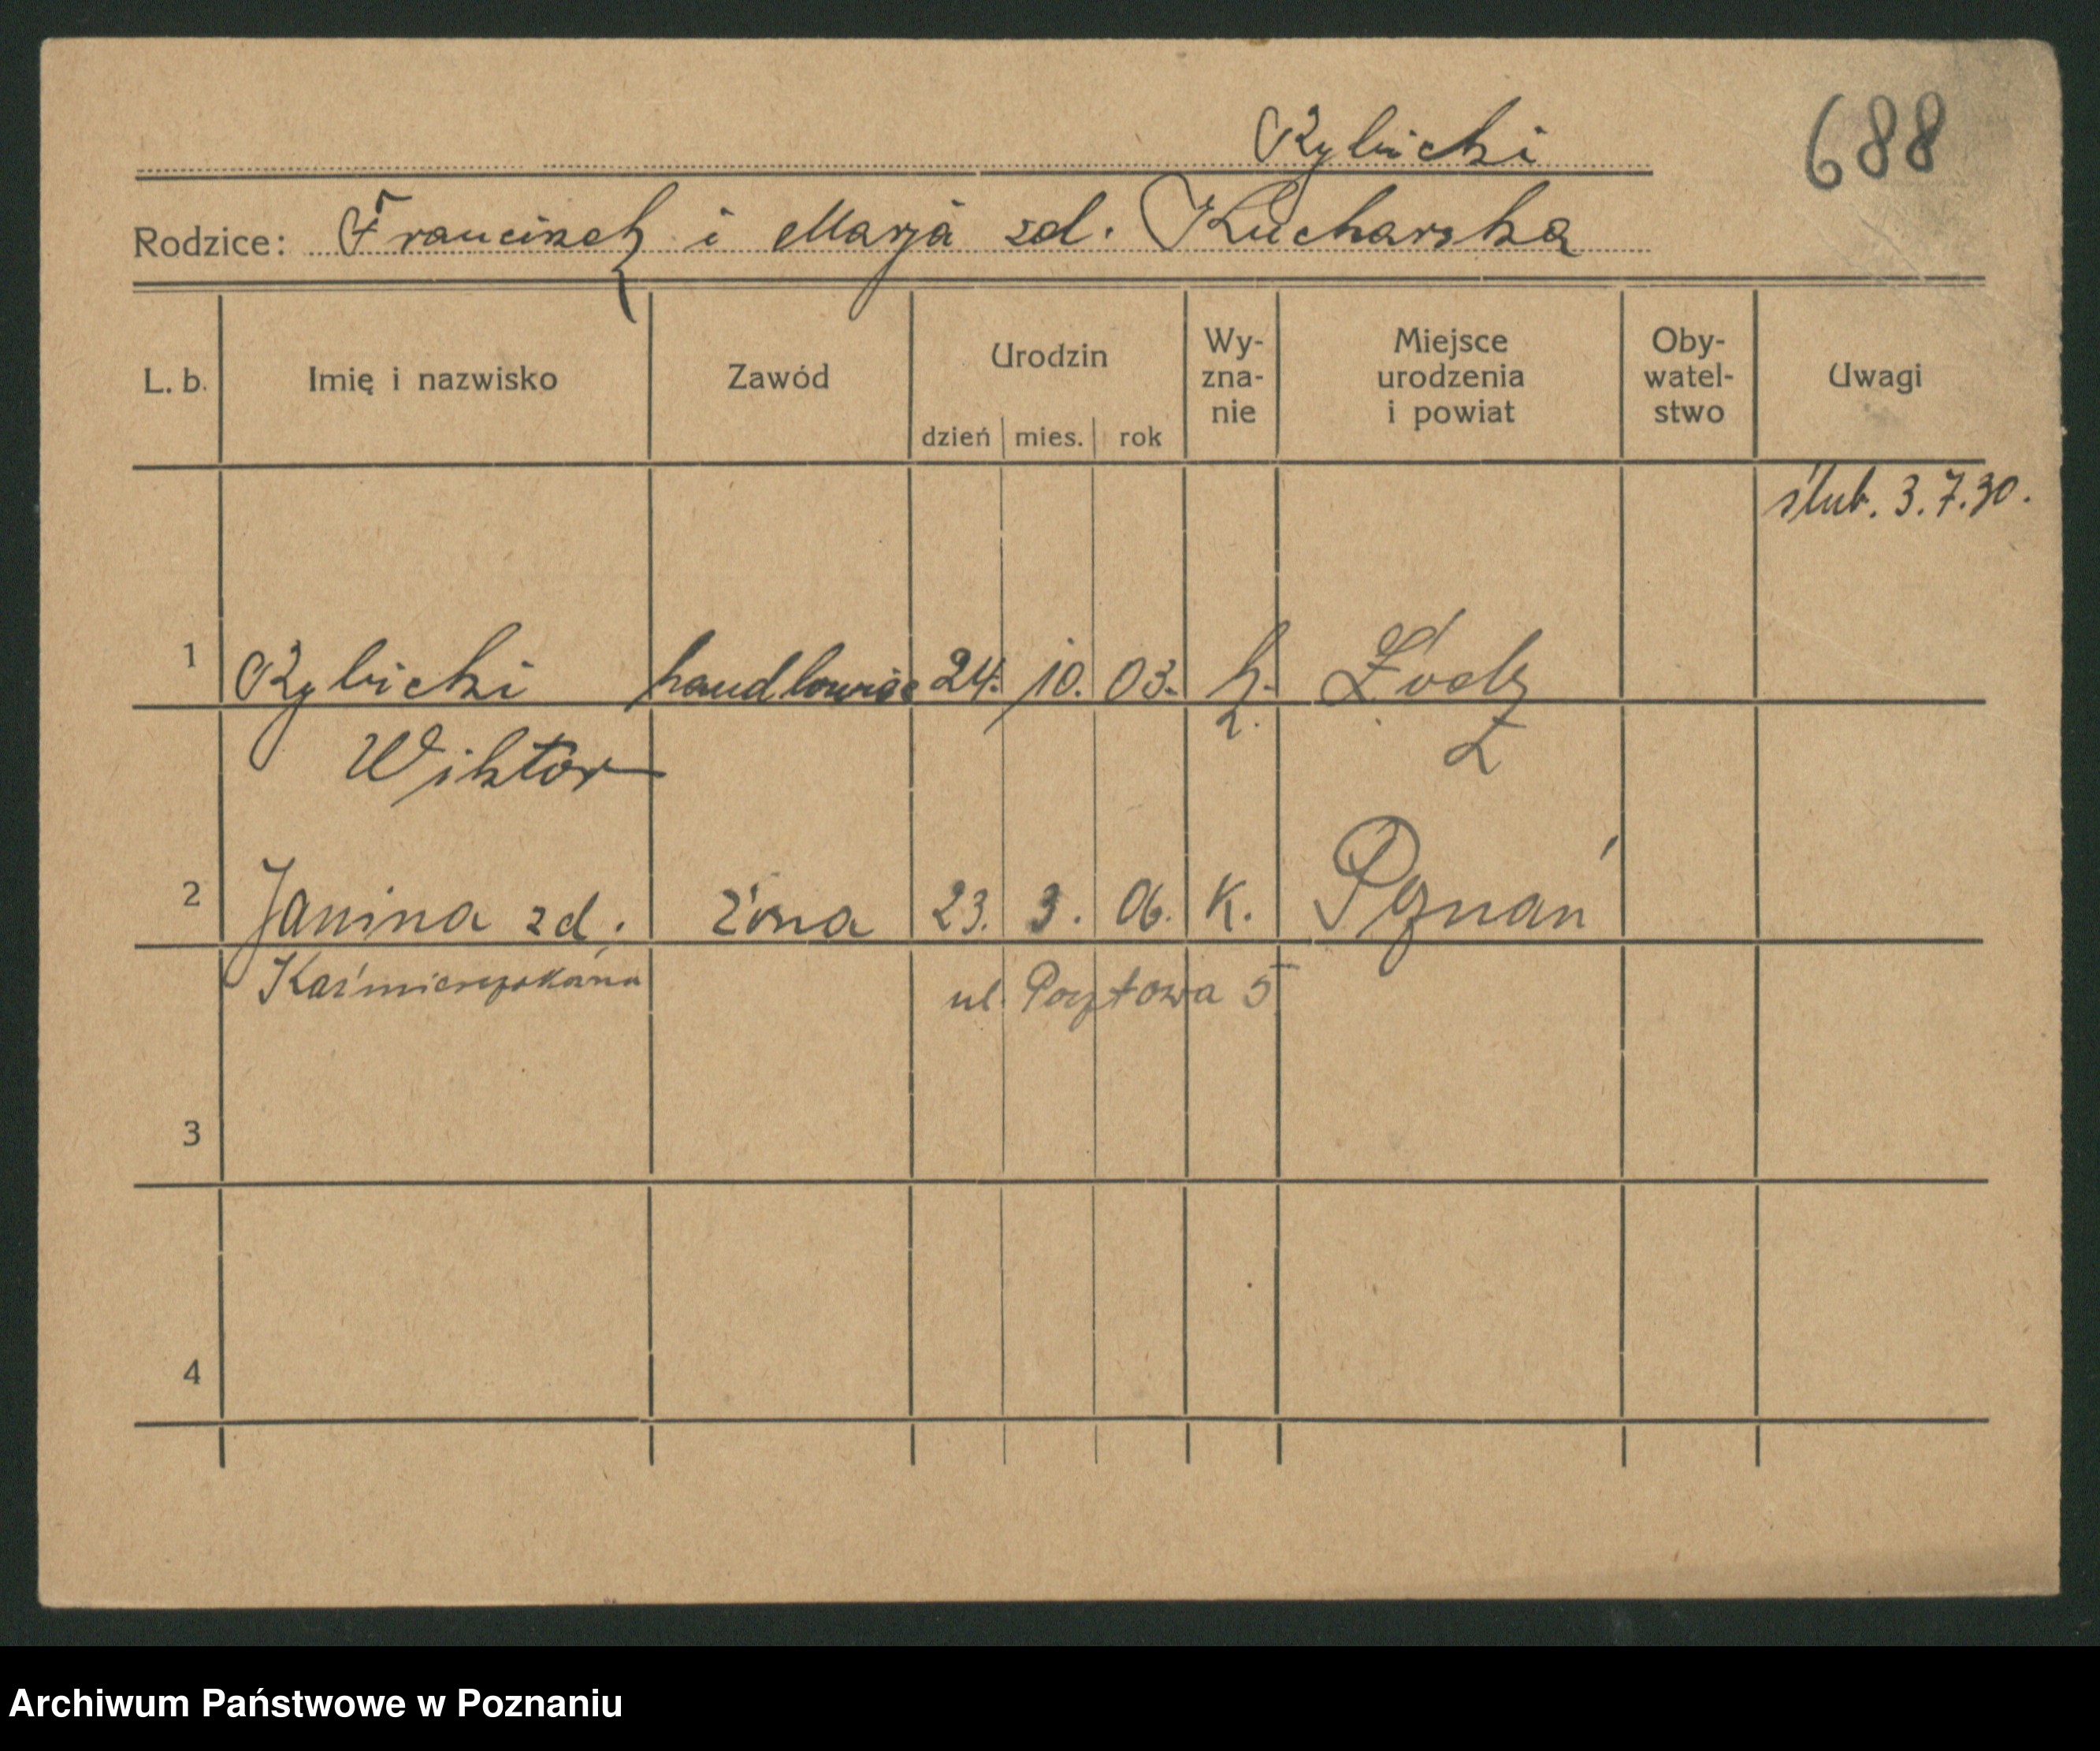 Rybicki
688
Rodzice: Franciszek i Marja zd. Kucharska
L. b. Imię i nazwisko Zawód Urodzin dzień mies. rok Wy-zna-nie Miejsce urodzenia i powiat Oby-watel-stwo Uwagi
ślub. 3.7.30.
1 Rybicki handlowiec 24. 10. 03. k. Łódź
Wiktor
2 Janina zd. żona 23. 3. 06. K. Poznań
Kaźmierczakówna ul. Pocztowa 5
3
4
Archiwum Państwowe w Poznaniu